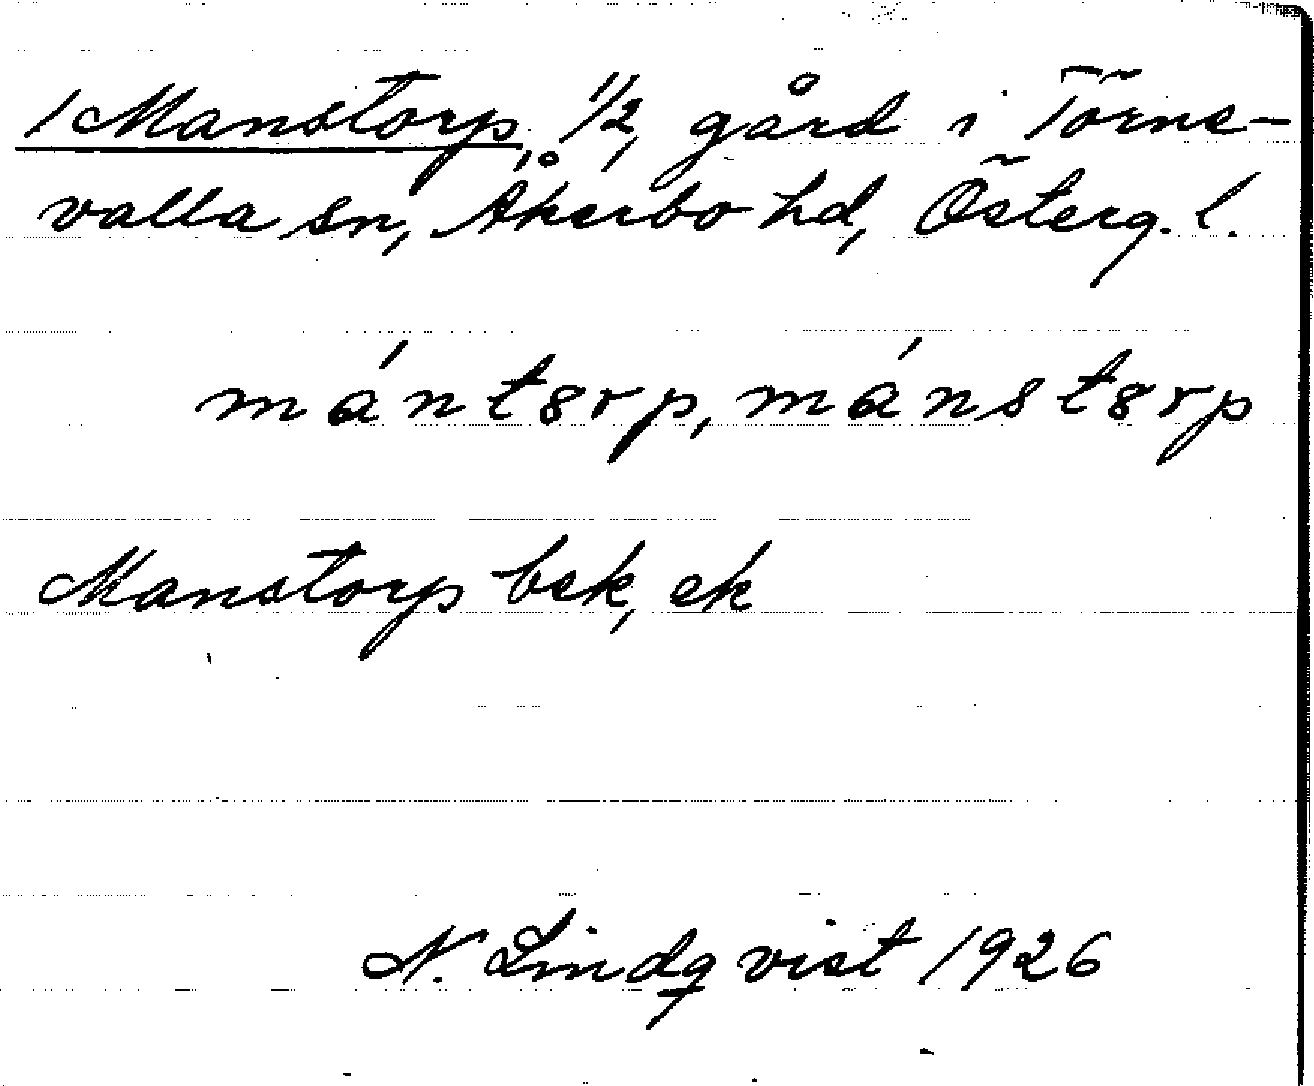 1 Manstorp, 1/2, gård i Törne-
valla sn, Åkerbo hd, Österg. l.
mánt8rp, mánst8rp
Manstorp bek, ek
N. Lindqvist 1926